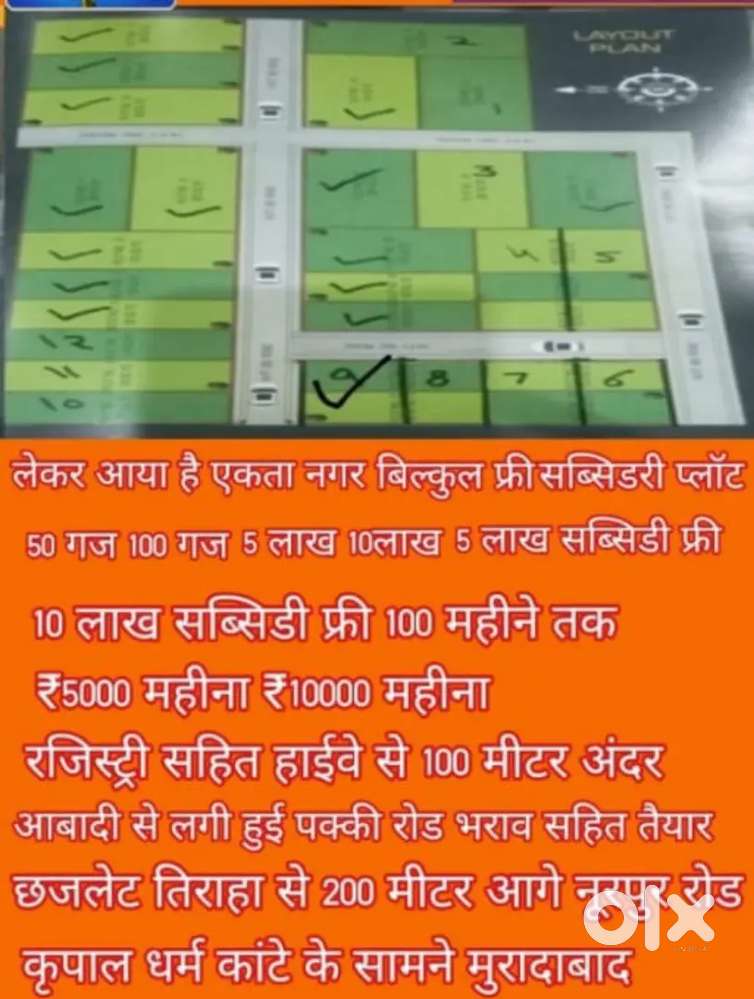 LAYOUT
PLAN
2
1
3
4
5
12
11
10
9
8
7
6
लेकर आया है एकता नगर बिल्कुल फ्री सब्सिडरी प्लॉट
50 गज 100 गज 5 लाख 10लाख 5 लाख सब्सिडी फ्री
10 लाख सब्सिडी फ्री 100 महीने तक
₹5000 महीना ₹10000 महीना
रजिस्ट्री सहित हाईवे से 100 मीटर अंदर
आबादी से लगी हुई पक्की रोड भराव सहित तैयार
छजलेट तिराहा से 200 मीटर आगे नूरपुर रोड
कृपाल धर्म कांटे के सामने मुरादाबाद
olx